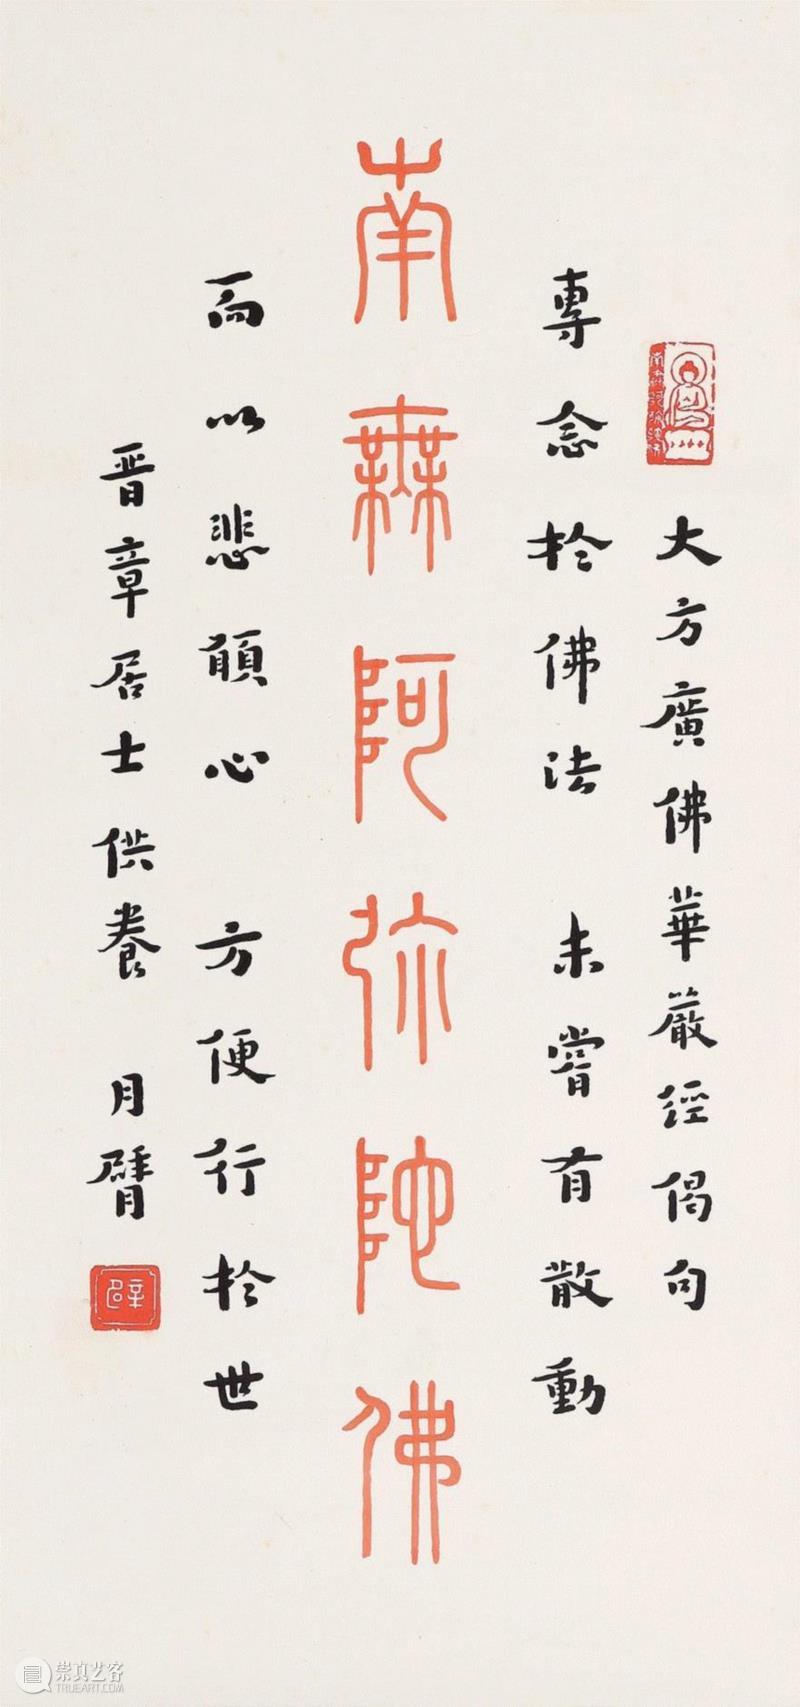 大方廣佛華嚴經偈句
專念於佛法 未嘗有散動
南無阿弥陀佛
而以悲願心 方便行於世
晉章居士供養 月臂
崇真艺客
TRUEART.COM